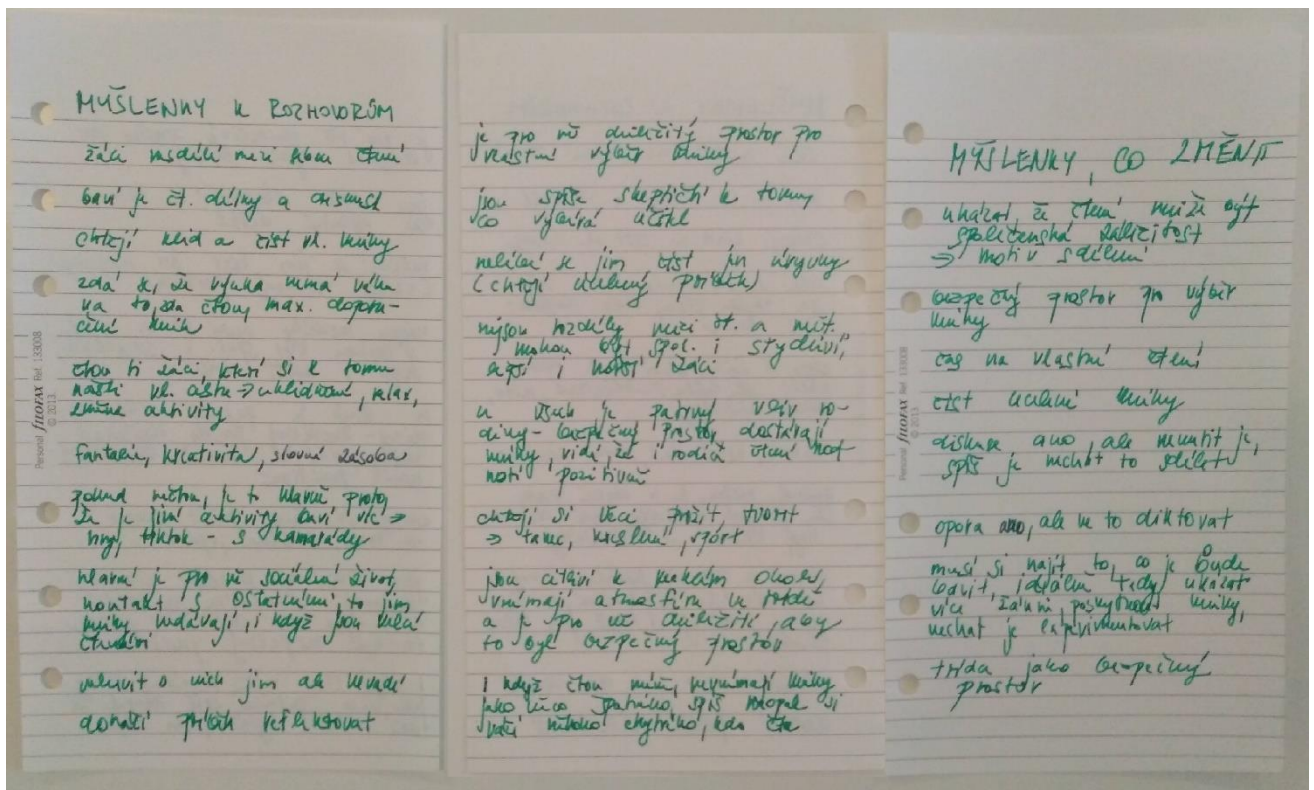 MYŠLENKY K ROZHOVORŮM
žáci nesdílí mezi sebou čtení
baví je čt. dílny a
chtějí klid a číst vl. knihy
zdá se, že výuka nemá vliv
na to, zda čtou, max. doporu-
čení knih
čtou ti žáci, kteří si k tomu
našli vl. cestu ⇒ uklidnění, relax,
aktivity
fantazie, kreativita, slovní zásoba
pokud nečtou, je to hlavně proto,
že je jiné aktivity baví víc ⇒
hry, tiktok - s kamarády
hlavní je pro ně sociální život,
kontakt s ostatními, to jim
knihy nedávají, i když jsou
čtenáři
mluvit o nich jim ale nevadí
dokáží příběh reflektovat
je pro ně důležitý prostor pro
vlastní výběr knihy
jsou spíše skeptičtí k tomu
co vybírá učitel
nelíbí se jim číst jen úryvky
(chtějí ucelený příběh)
nejsou rozdíly mezi čt. a nečt.
mohou být spol. i stydliví,
lepší i horší žáci
u všech je patrný vliv ro-
diny - bezpečný prostor, dostávají
knihy, vidí, že i rodiče čtení hod-
notí pozitivně
chtějí si věci prožít, tvořit
⇒ tanec, kreslení, sport
jsou citliví k reakcím okolí,
vnímají atmosféru ve třídě
a je pro ně důležité, aby
to byl bezpečný prostor
I když čtou méně, nevnímají knihy
jako něco špatného, spíš naopak si
váží někoho chytrého, kdo čte
MYŠLENKY, CO ZMĚNIT
ukázat, že čtení může být
společenská záležitost
⇒ motiv sdílení
bezpečný prostor pro výběr
knihy
čas na vlastní čtení
číst ucelené knihy
diskuse ano, ale nenutit je,
spíš je nechat to sdílet
opora ano, ale ne to diktovat
musí si najít to, co je bude
bavit, ideálně tedy ukázat
více žánrů, poskytnout knihy,
nechat je experimentovat
třída jako bezpečný
prostor
Personal FILOFAX Ref. 133008
© 2013
Personal FILOFAX Ref. 133008
© 2013